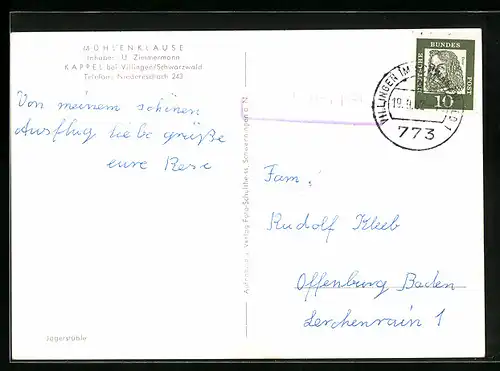 MÜHLENKLAUSE
Inhaber: U. Zimmermann
KAPPEL bei Villingen/Schwarzwald
Telefon: Niedereschach 243
Von meinem schönen
Ausflug liebe grüße
eure Rese
Jägerstüble
Aufnahme u. Verlag Foto-Schultheiss, Schwenningen a. N.
DEUTSCHE
BUNDES
POST
10
VILLINGEN IM
19.
773
Fam.
Rudolf Kleeb
Offenburg Baden
Lerchenrain 1